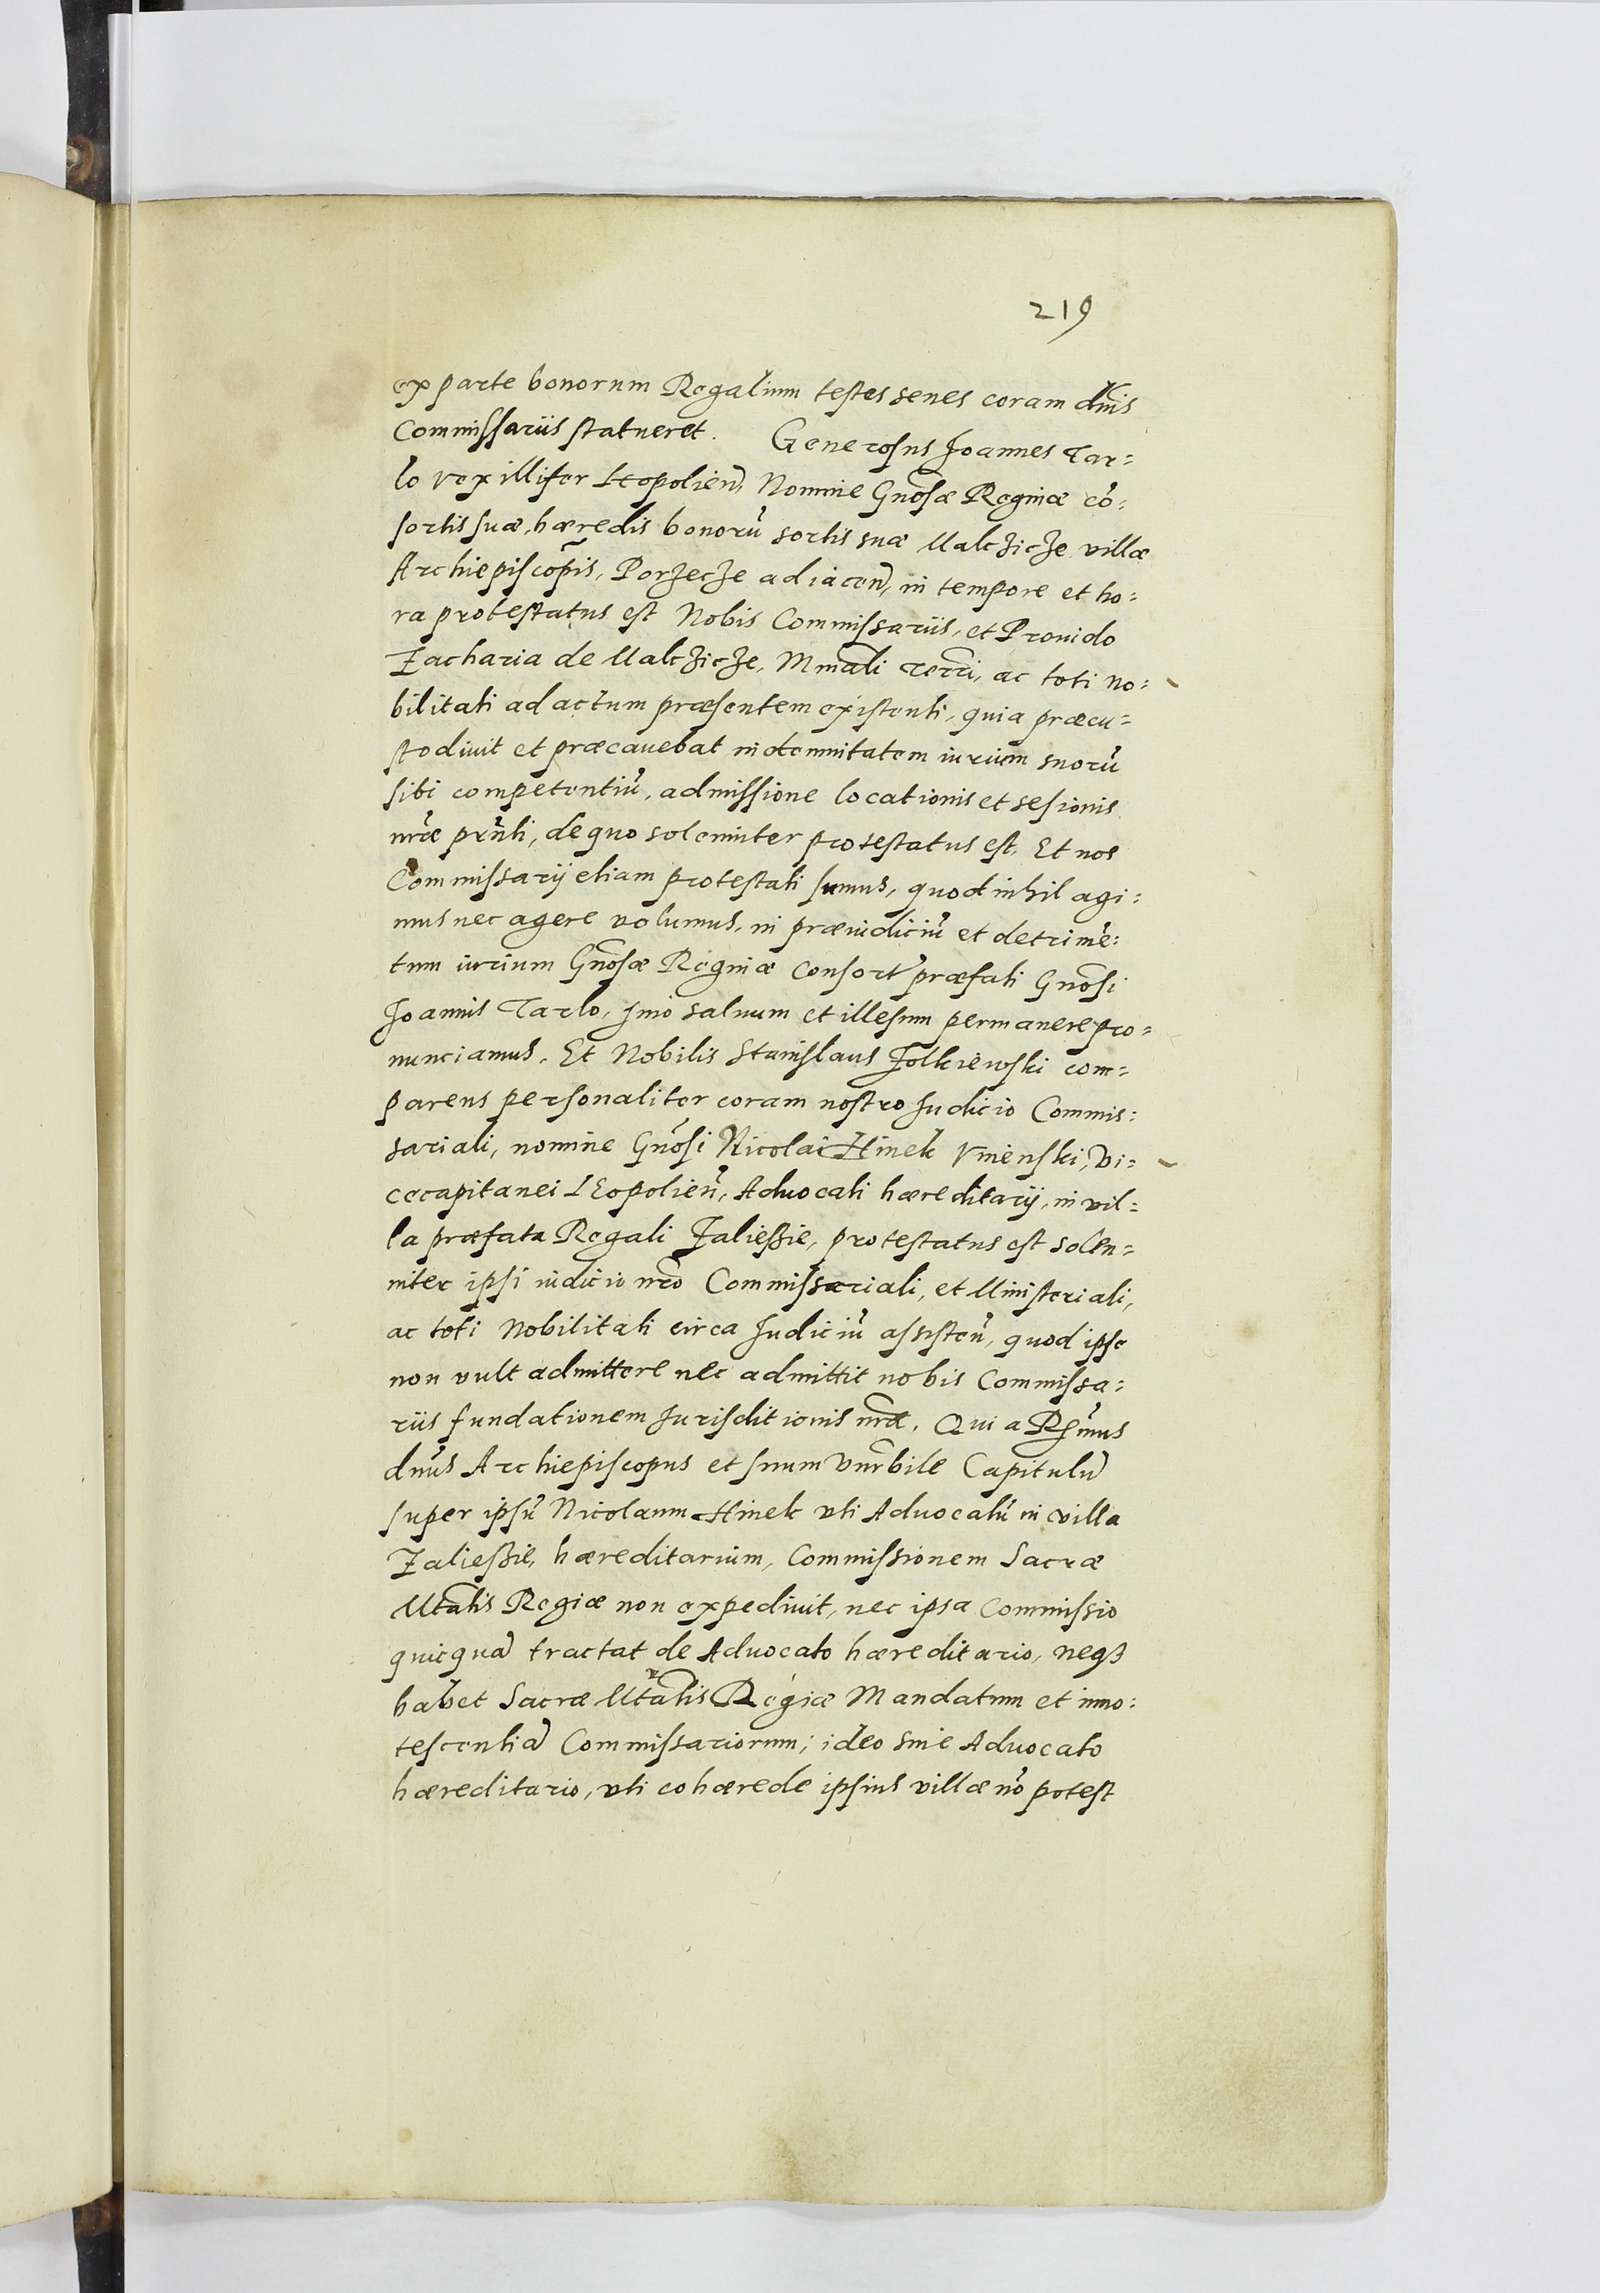 219
ex parte bonorum Regalium testes senes coram dnis
Commissariis statueret. Generosus Joannes Tar=
lo vexillifer Leopolien, Nomine Gnosæ Reginæ cõ=
sortis suæ, hæredis bonorũ sortis suæ Malcżicże villæ
Archiepiscopñis, Porzecze adiacen, in tempore et ho=
ra protestatus est Nobis Commissariis, et Prouido
Zacharia de Malcżicże, Mmali terri, ac toti no=
bilitati ad actum præsentem existenti, quia præcu=
stodiuit et præcauebat indemnitatem iurium suorũ
sibi competentiũ, admissione locationis et sesionis
nræ prñti, de quo solemniter protestatus est. Et nos
Commissarij etiam protestati sumus, quod inhil agi=
mus nec agere volumus, in præiudiciũ et detrimẽ=
tum iurium Gnosæ Reginæ Consort præfati Gnosi
Joannis Tarlo, jmo saluum et illesum permanere pro=
nunciamus. Et Nobilis Stanislaus Zolkiewski com=
parens personaliter coram nostro Judicio Commis=
sariali, nomine Gnosi Nicolai Hinek Vnienski, Vi=
cecapitanei LEopolieñ, Aduocati hæreditarij, in vil=
la præfata Regali Zalieszie, protestatus est solen=
niter ipsi iudicio nro Commissariali, et Ministeriali,
ac toti Nobilitati circa Judiciũ assisteñ, quod ipse
non vult admittere nec admittit nobis Commissa=
riis fundationem Jurisditionis nræ. Qui a Rsmus
dnus Archiepiscopus et suum Vnrbile Capitulũ
super ipsũ Nicolaum Hinek vti Aduocatũ in villa
Zalieszie, hæreditarium, Commissionem Sacræ
Mtatis Regiæ non expediuit, nec ipsa Commissio
quicquã tractat de Aduocato hæreditario, neqȝ
habet Sacræ Mtatis Regiæ Mandatum et inno=
tescentiã Commissariorum; ideo sine Aduocato
hæreditario, vti cohærede ipsius villæ nõ potest